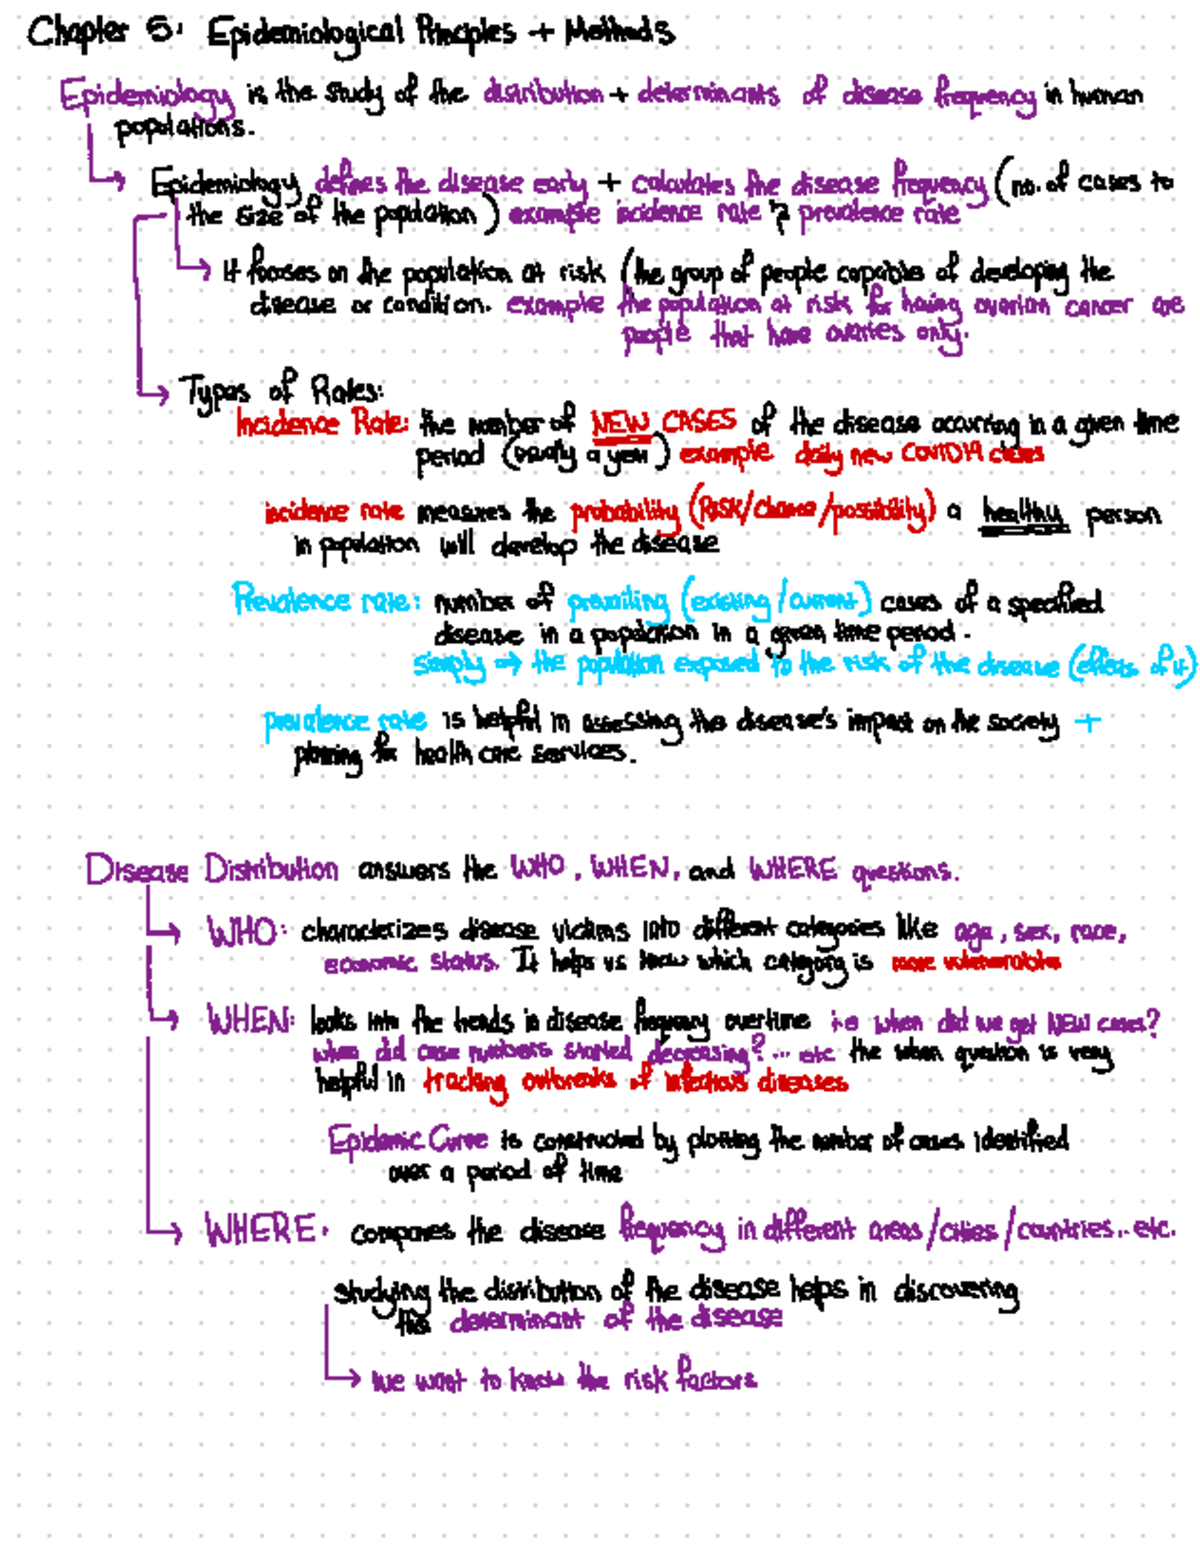 Chapter 5: Epidemiological Principles + Methods
Epidemiology is the study of the distribution + determinants of disease frequency in human
populations.
Epidemiology defines the disease early + calculates the disease frequency (no. of cases to
the size of the population) example incidence rate & prevalence rate
It focuses on the population at risk (the group of people capable of developing the
disease or condition. example the population at risk for having ovarian cancer are
people that have ovaries only.
Types of Rates:
Incidence Rate: the number of NEW CASES of the disease occurring in a given time
period (usually a year) example daily new COVID19 cases
incidence rate measures the probability (RISK/chance/possibility) a healthy person
in population will develop the disease
Prevalence rate: number of prevailing (existing/current) cases of a specified
disease in a population in a given time period.
simply → the population exposed to the risk of the disease (effects of it)
prevalence rate is helpful in assessing the disease's impact on the society +
planning for health care services.
Disease Distribution answers the WHO, WHEN, and WHERE questions.
WHO: characterizes disease victims into different categories like age, sex, race,
economic status. It helps us know which category is more vulnerable
WHEN: looks into the trends in disease frequency overtime i.e when did we get NEW cases?
when did case numbers started decreasing? ... etc the when question is very
helpful in tracking outbreaks of infectious diseases
Epidemic Curve is constructed by plotting the number of cases identified
over a period of time
WHERE: compares the disease frequency in different areas/cities/countries.. etc.
studying the distribution of the disease helps in discovering
the determinant of the disease
we want to know the risk factors